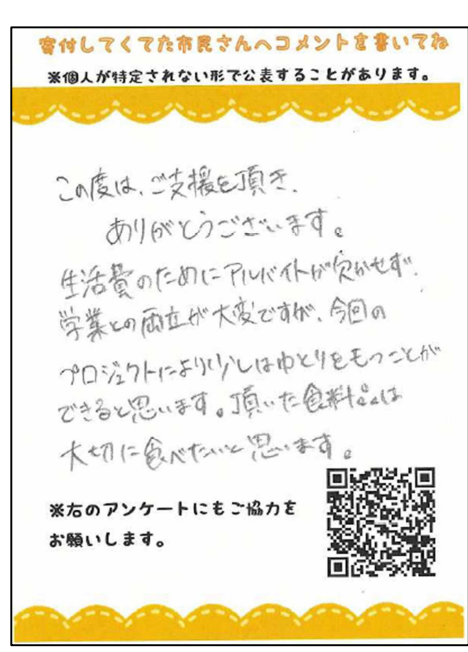 寄付してくてた市民さんへコメントを書いてね
※個人が特定されない形で公表することがあります。
この度は、ご支援を頂き、
ありがとうございます。
生活費のためにアルバイトが欠かせず、
学業との両立が大変ですが、今回の
プロジェクトにより少しはゆとりをもつことが
できると思います。頂いた食料品は
大切に食べたいと思います。
※右のアンケートにもご協力を
お願いします。